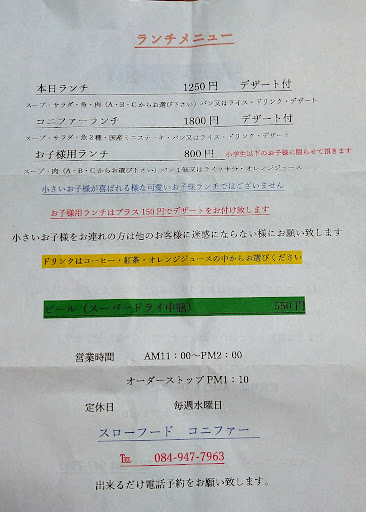 ランチメニュー
本日ランチ 1250円 デザート付
スープ・サラダ・魚・肉（A・B・Cからお選び下さい）パン又はライス・ドリンク・デザート
コニファーランチ 1800円 デザート付
スープ・サラダ・魚2種・国産ミニステーキ・パン又はライス・ドリンク・デザート
お子様用ランチ 800円 小学生以下のお子様に限らせて頂きます
スープ・肉（A・B・Cからお選び下さい）パン1個又はライス半分・オレンジジュース
小さいお子様が喜ばれる様な可愛いお子様ランチではございません
お子様用ランチはプラス150円でデザートをお付け致します
小さいお子様をお連れの方は他のお客様に迷惑にならない様にお願い致します
ドリンクはコーヒー・紅茶・オレンジジュースの中からお選びください
ビール（スーパードライ中瓶） 550円
営業時間 AM11：00～PM2：00
オーダーストップPM1：10
定休日 毎週水曜日
スローフード コニファー
℡ 084-947-7963
出来るだけ電話予約をお願い致します。